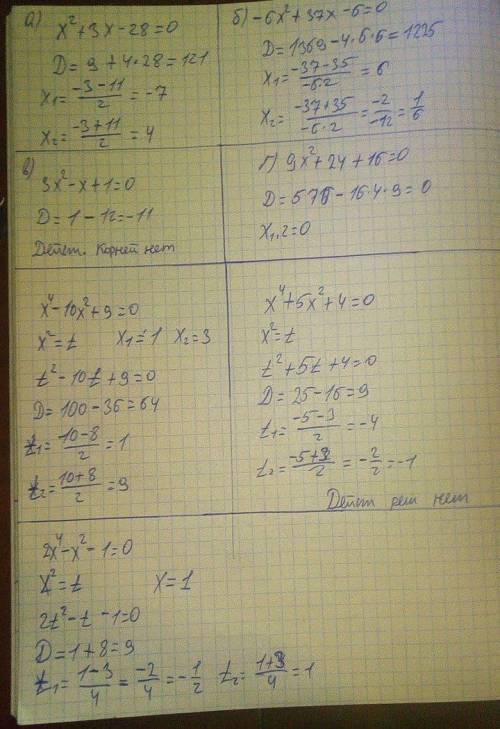 а)
x²+3x-28=0
D=9+4·28=121
x₁=(-3-11)/2=-7
x₂=(-3+11)/2=4
б) -6x²+37x-6=0
D=1369-4·6·6=1225
x₁=(-37-35)/(-6·2)=6
x₂=(-37+35)/(-6·2)=(-2)/(-12)=1/6
в)
3x²-x+1=0
D=1-12=-11
Дейст. Корней нет
г) 9x²+24+16=0
D=576-16·4·9=0
x₁,₂=0
x⁴-10x²+9=0
x²=t x₁=1 x₂=3
t²-10t+9=0
D=100-36=64
t₁=(10-8)/2=1
t₂=(10+8)/2=9
x⁴+5x²+4=0
x²=t
t²+5t+4=0
D=25-16=9
t₁=(-5-3)/2=-4
t₂=(-5+3)/2=-2/2=-1
Дейст реш нет
2x⁴-x²-1=0
x²=t x=1
2t²-t-1=0
D=1+8=9
t₁=(1-3)/4=-2/4=-1/2 t₂=(1+3)/4=1